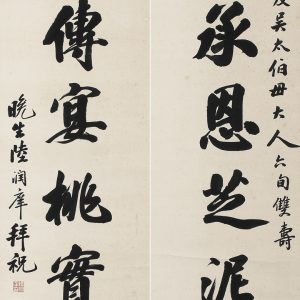 吴太伯母大人六旬雙壽
承恩芝泥
傳宴桃實
晚生陸润庠拜祝